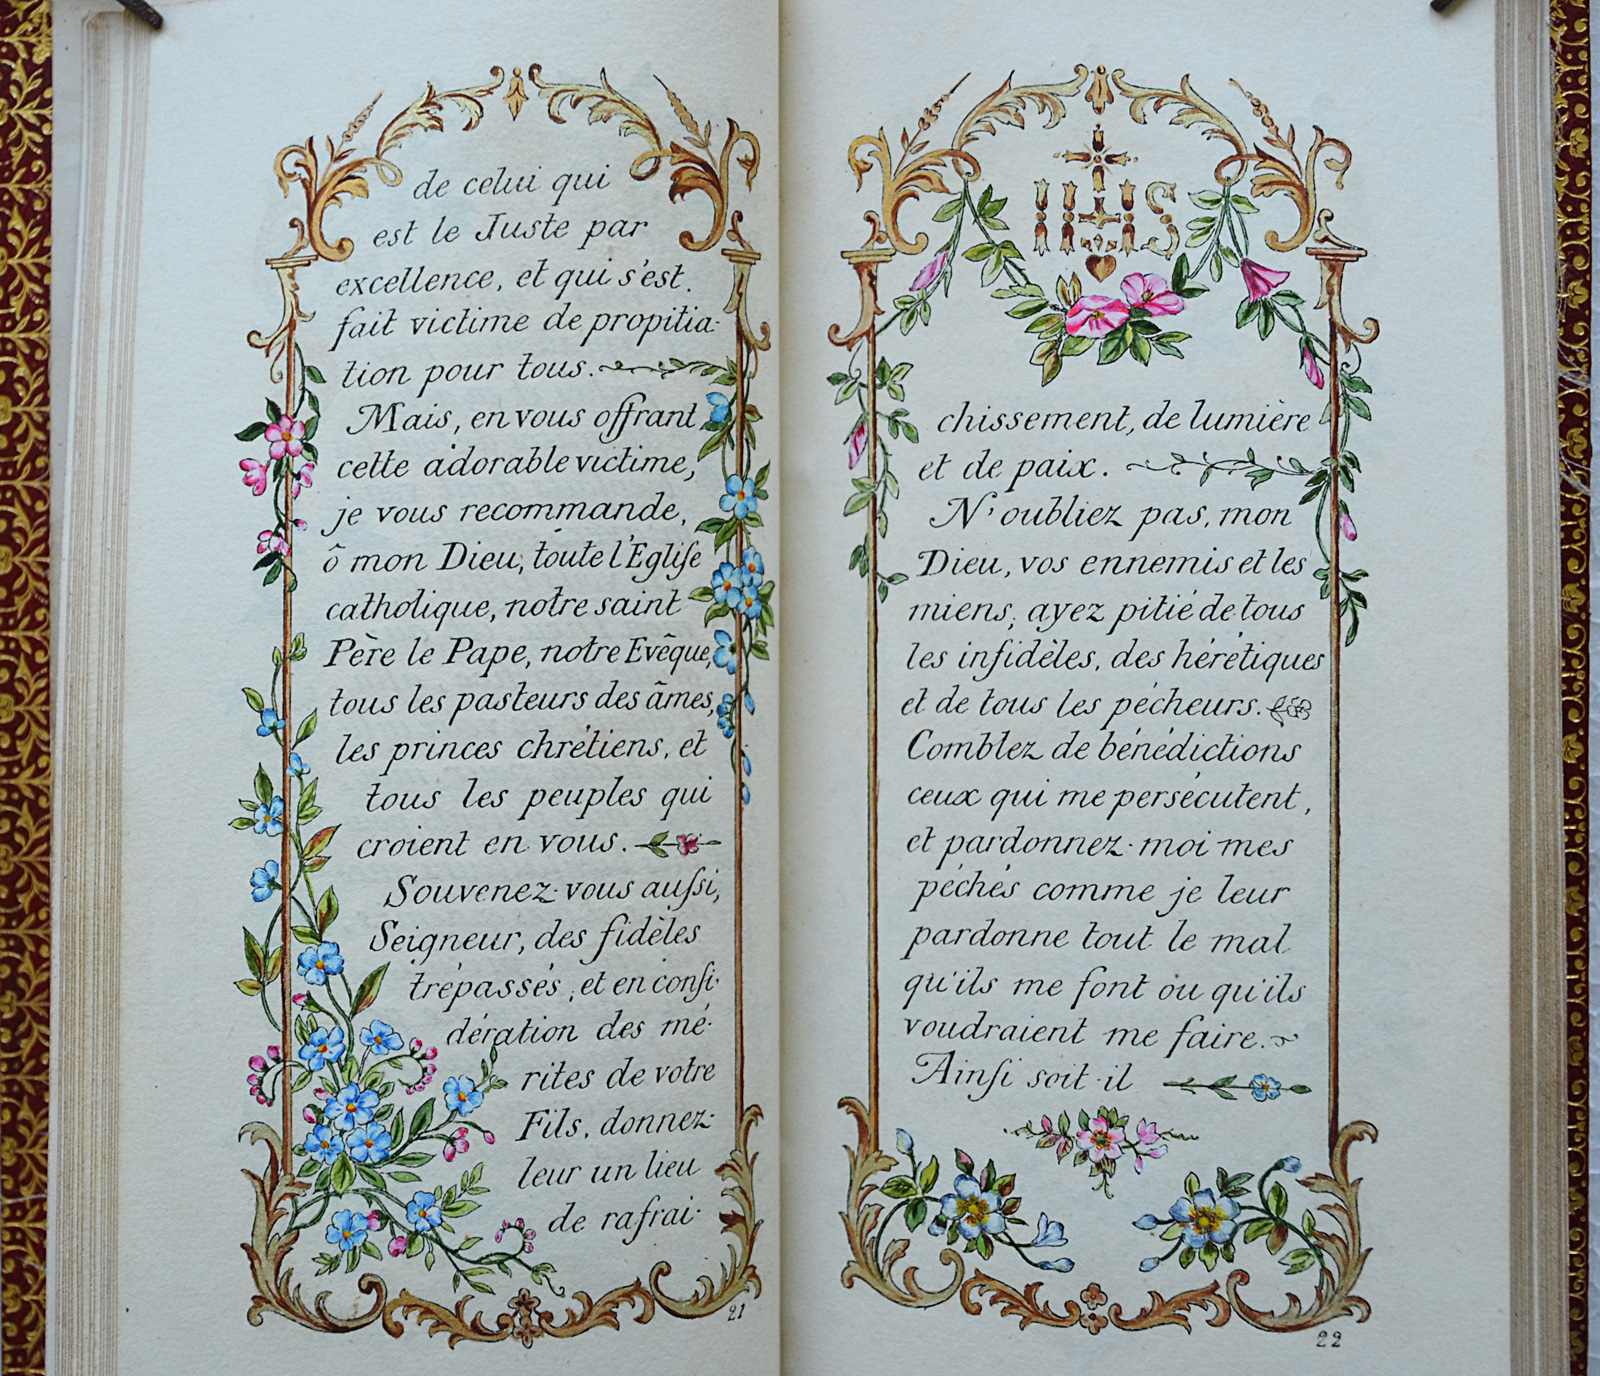 de celui qui
est le Juste par
excellence, et qui s'est
fait victime de propitia-
tion pour tous.
Mais, en vous offrant
cette adorable victime,
je vous recommande,
ô mon Dieu, toute l'Egliſe
catholique, notre saint
Père le Pape, notre Evêque,
tous les pasteurs des âmes,
les princes chrétiens, et
tous les peuples qui
croient en vous.
Souvenez-vous auſsi,
Seigneur, des fidèles
trépassés, et en conſi-
dération des mé-
rites de votre
Fils, donnez-
leur un lieu
de rafraî-
21
IHS
chissement, de lumière
et de paix.
N'oubliez pas, mon
Dieu, vos ennemis et les
miens, ayez pitié de tous
les infidèles, des hérétiques
et de tous les pécheurs.
Comblez de bénédictions
ceux qui me persécutent,
et pardonnez-moi mes
péchés comme je leur
pardonne tout le mal
qu'ils me font ou qu'ils
voudraient me faire.
Ainſi soit-il
22